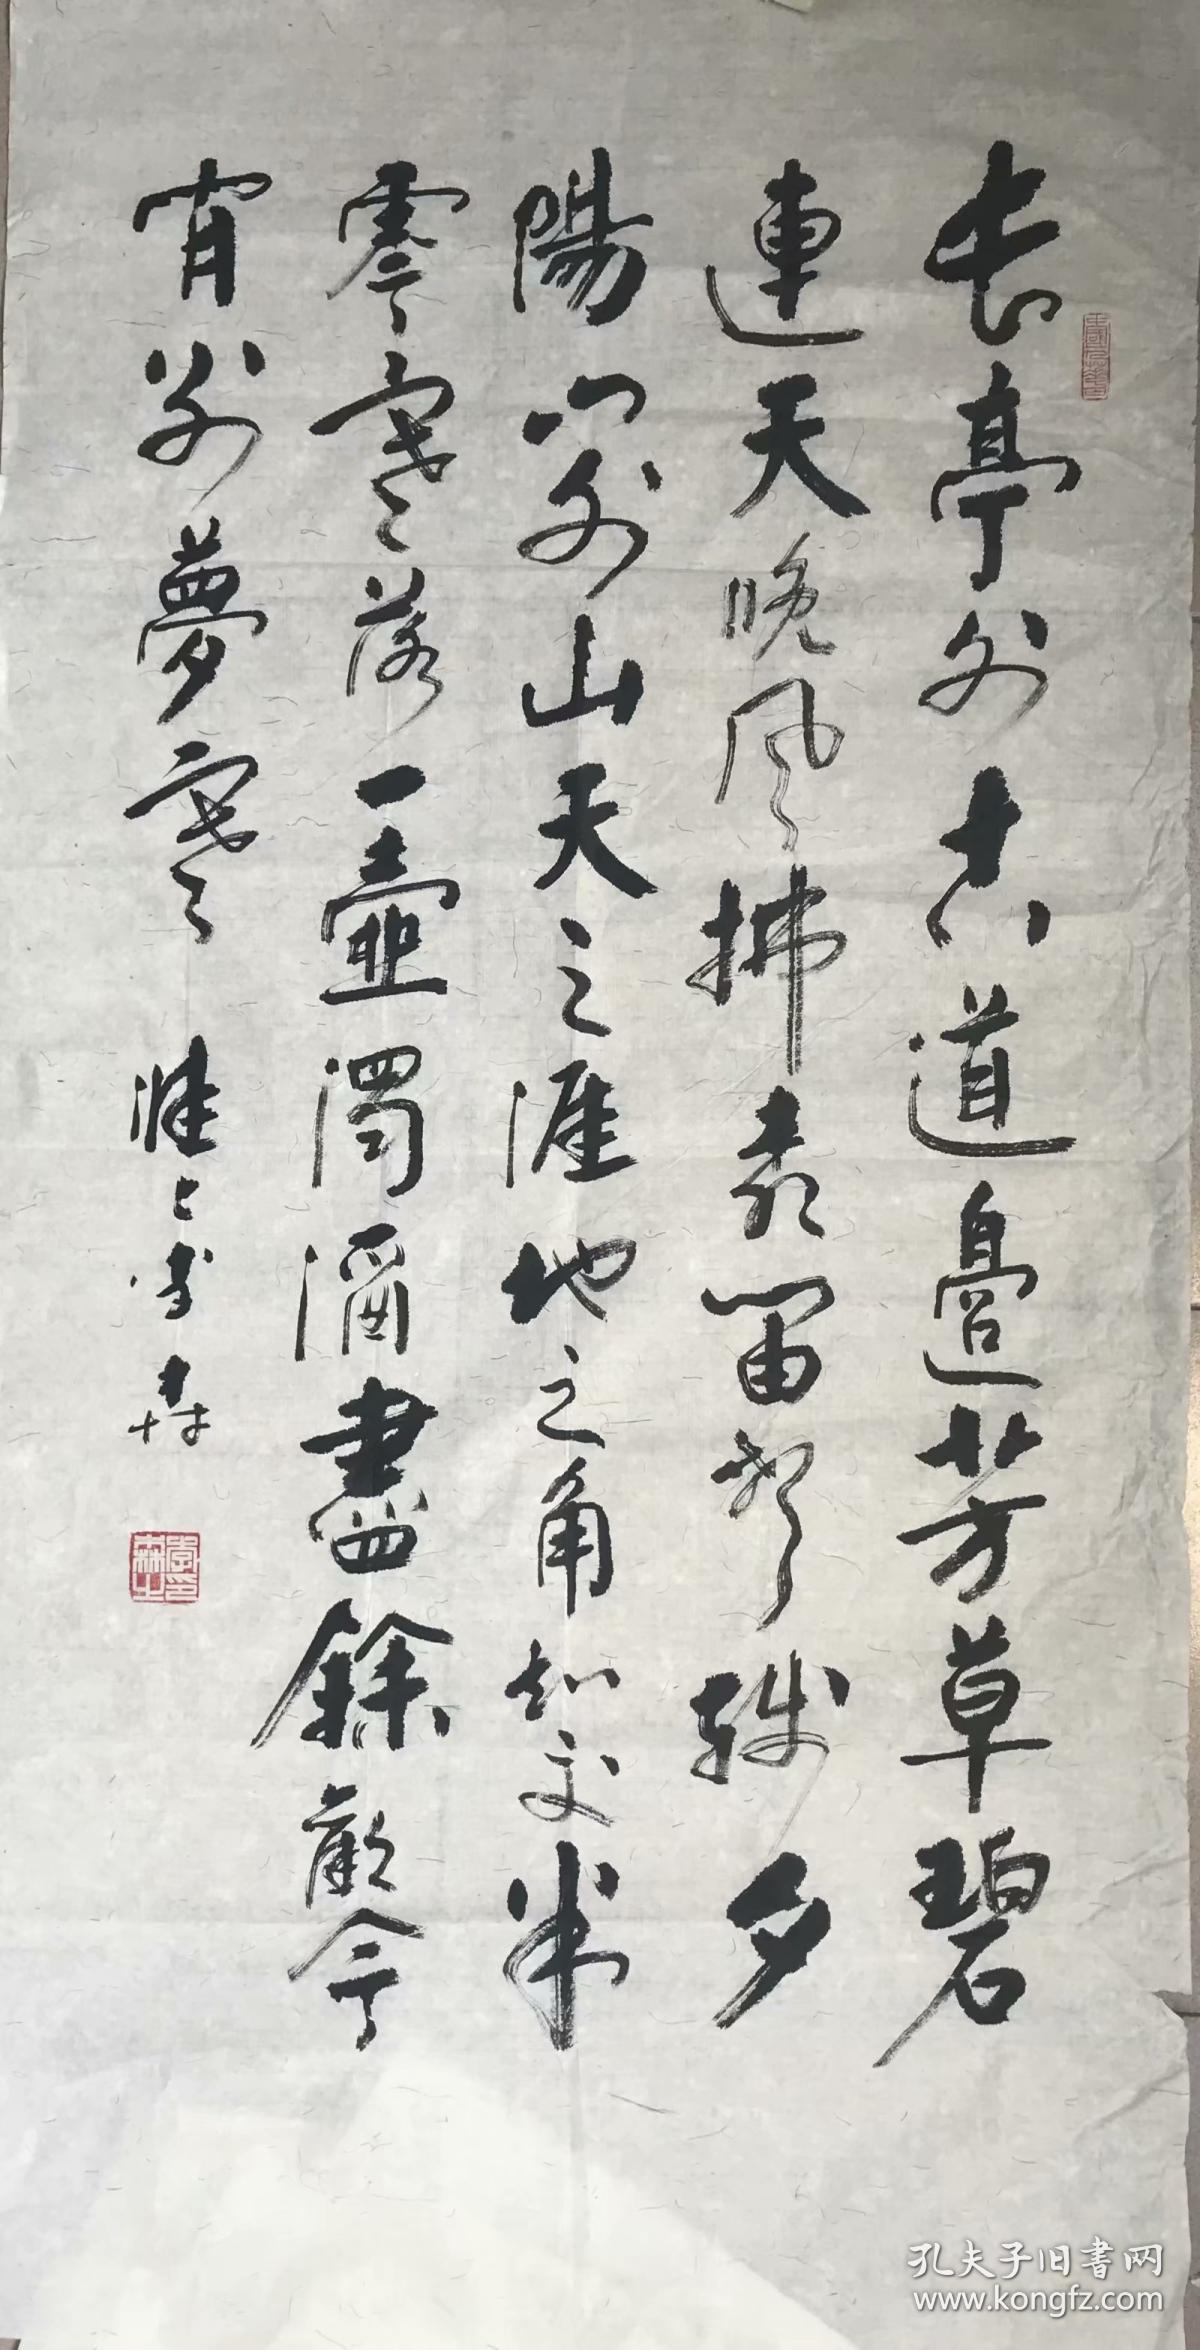 長亭外古道邊芳草碧
連天晚風拂柳笛聲殘夕
陽山外山天之涯地之角知交半
零落一壺濁酒盡餘歡今
宵別夢寒
孔夫子旧书网
www.kongfz.com